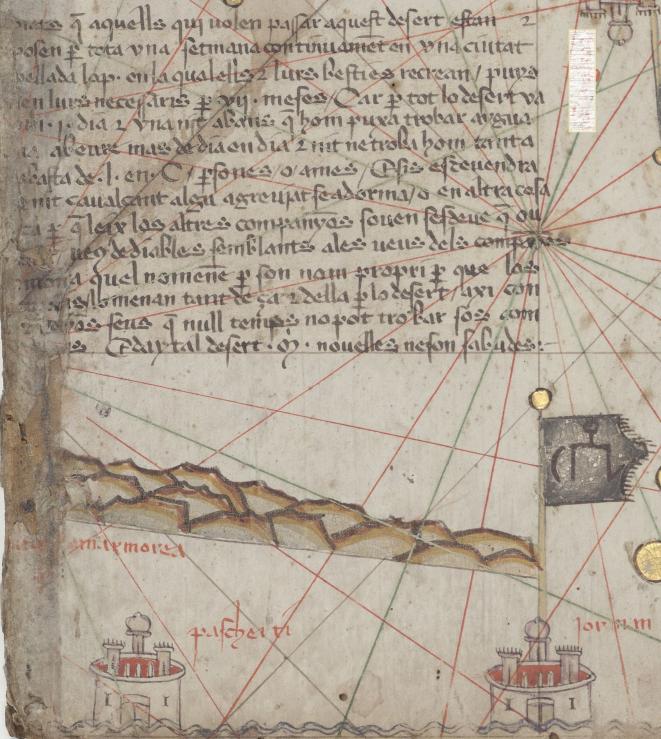 q̄ aquells qui volen passar aquest desert estan ⁊
posen p̄ tota vna setmana continuament en vna ciutat
appellada lop · en la qual ells ⁊ lurs besties recrean / puys
lurs necessaris p̄ vij · meses / Car p̄ tot lo desert va
· j · dia ⁊ vna nit abans q̄ hom puxa trobar aygua
abeure mas de dia en dia ⁊ nit ne troba hom tanta
basta de · l · en · C / p̄sones / o / mes / E si esdevendra
nit caualcant algu agreujat se adorma / o en altra cosa
p̄ q̄ leix los altres companyos souen sesdeue q̄ ou
de diables semblants ales veus dels companyos
quel nomene p̄ son nom propri p̄ que los
menan tant de ça ⁊ della p̄ lo desert / axi con
seus q̄ null temps no pot trobar sos com
E daytal desert · M · nouelles ne son sabudes :
marmorea
pascherti